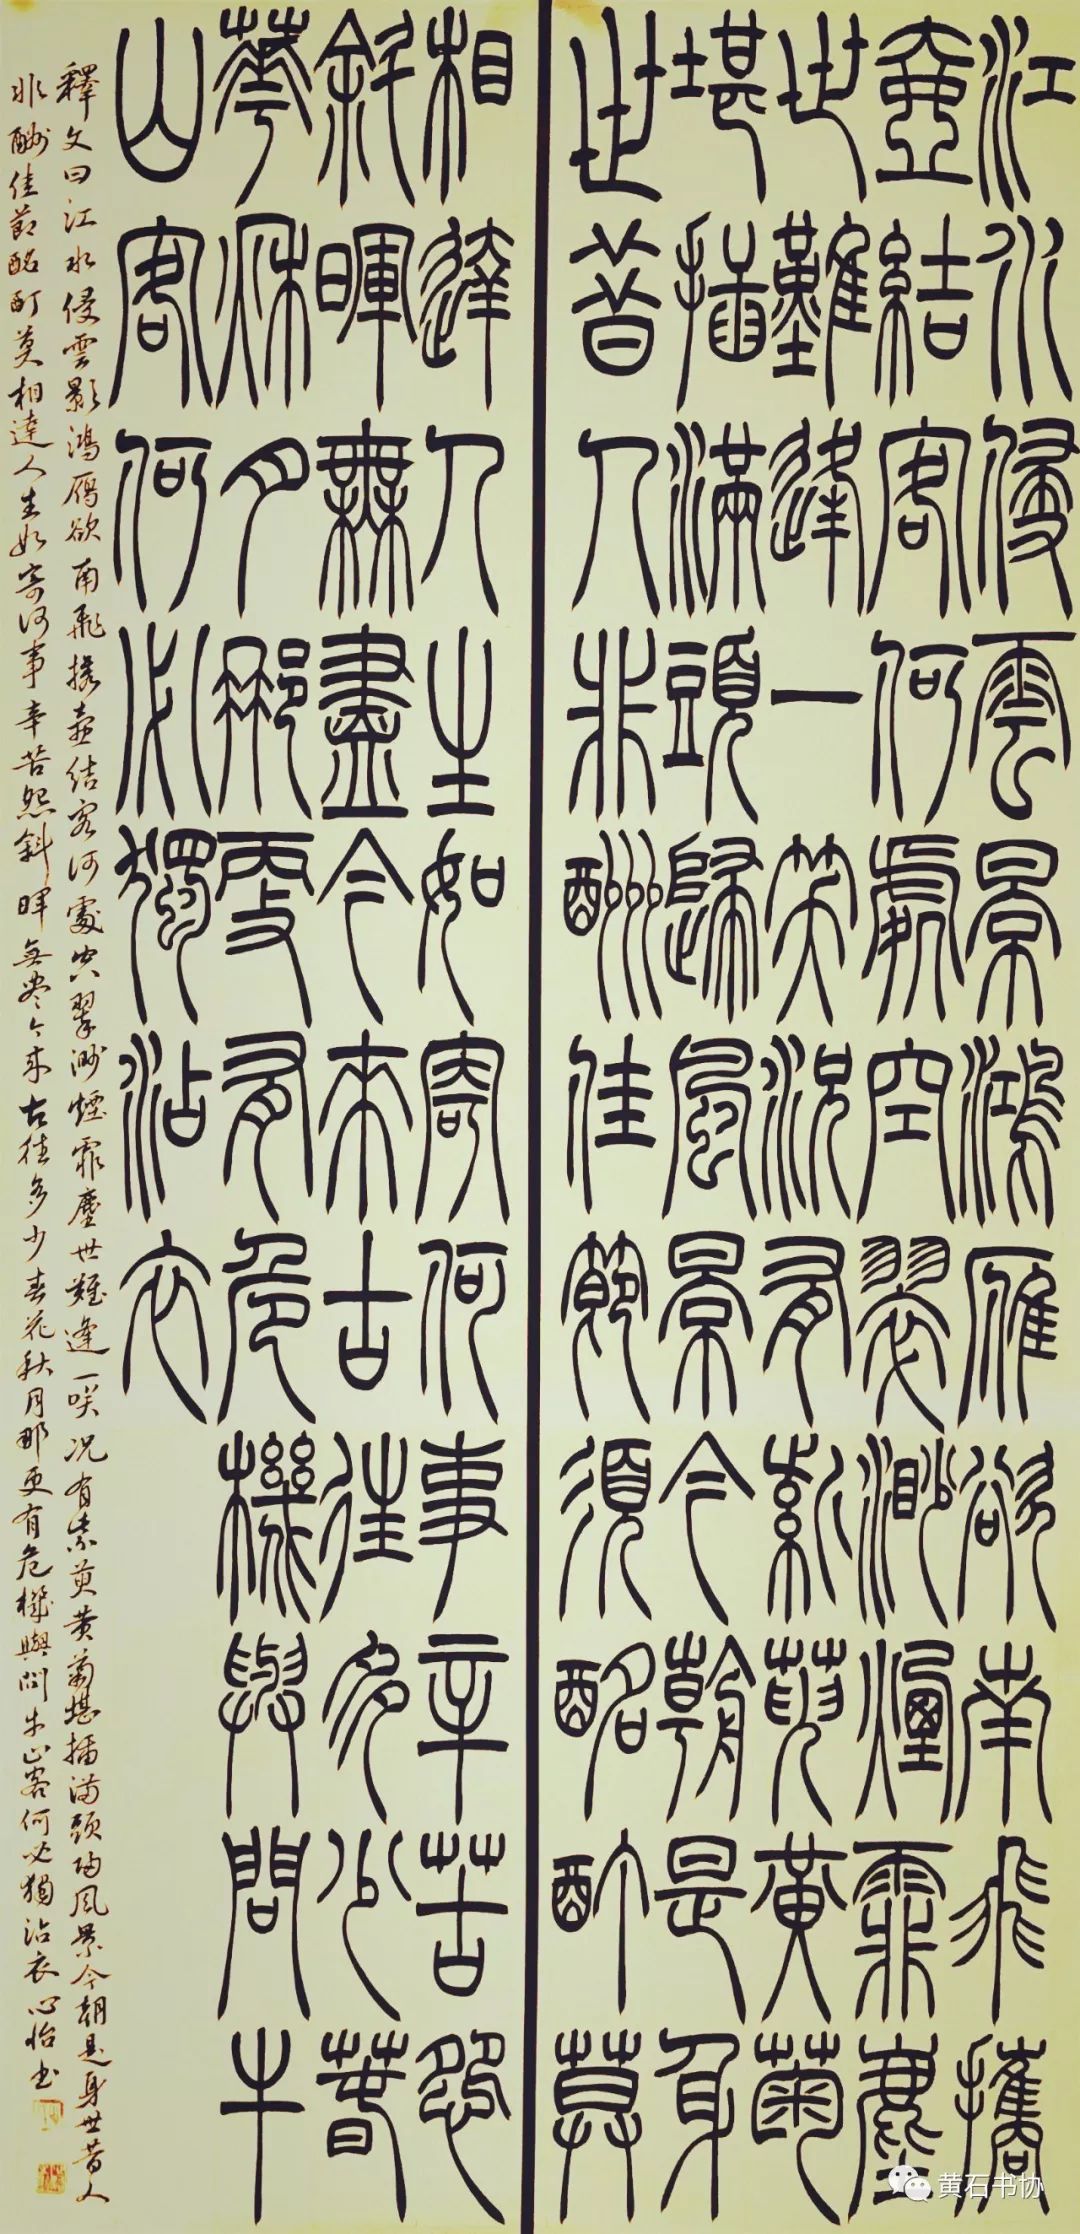 江水侵雲景鴻雁欲南飛攜
壺結客何處空翠渺煙霏塵
世難逢一笑況有紫萸黃菊
堪插滿頭歸風景今朝是身
世昔人非酬佳節須酩酊莫
相違人生如寄何事辛苦怨
斜暉無盡今來古往多少春
華秋月那更有危機與問牛
山客何必獨沾衣
釋文曰江水侵雲影鴻鴈欲南飛攜壺結客何處空翠渺煙霏塵世難逢一咲況有紫萸黃菊堪插滿頭歸風景今朝是身世昔人
非酬佳節酩酊莫相違人生如寄何事辛苦怨斜暉無盡今來古往多少春花秋月那更有危機與問牛山客何必獨沾衣心怡書
黄石书协